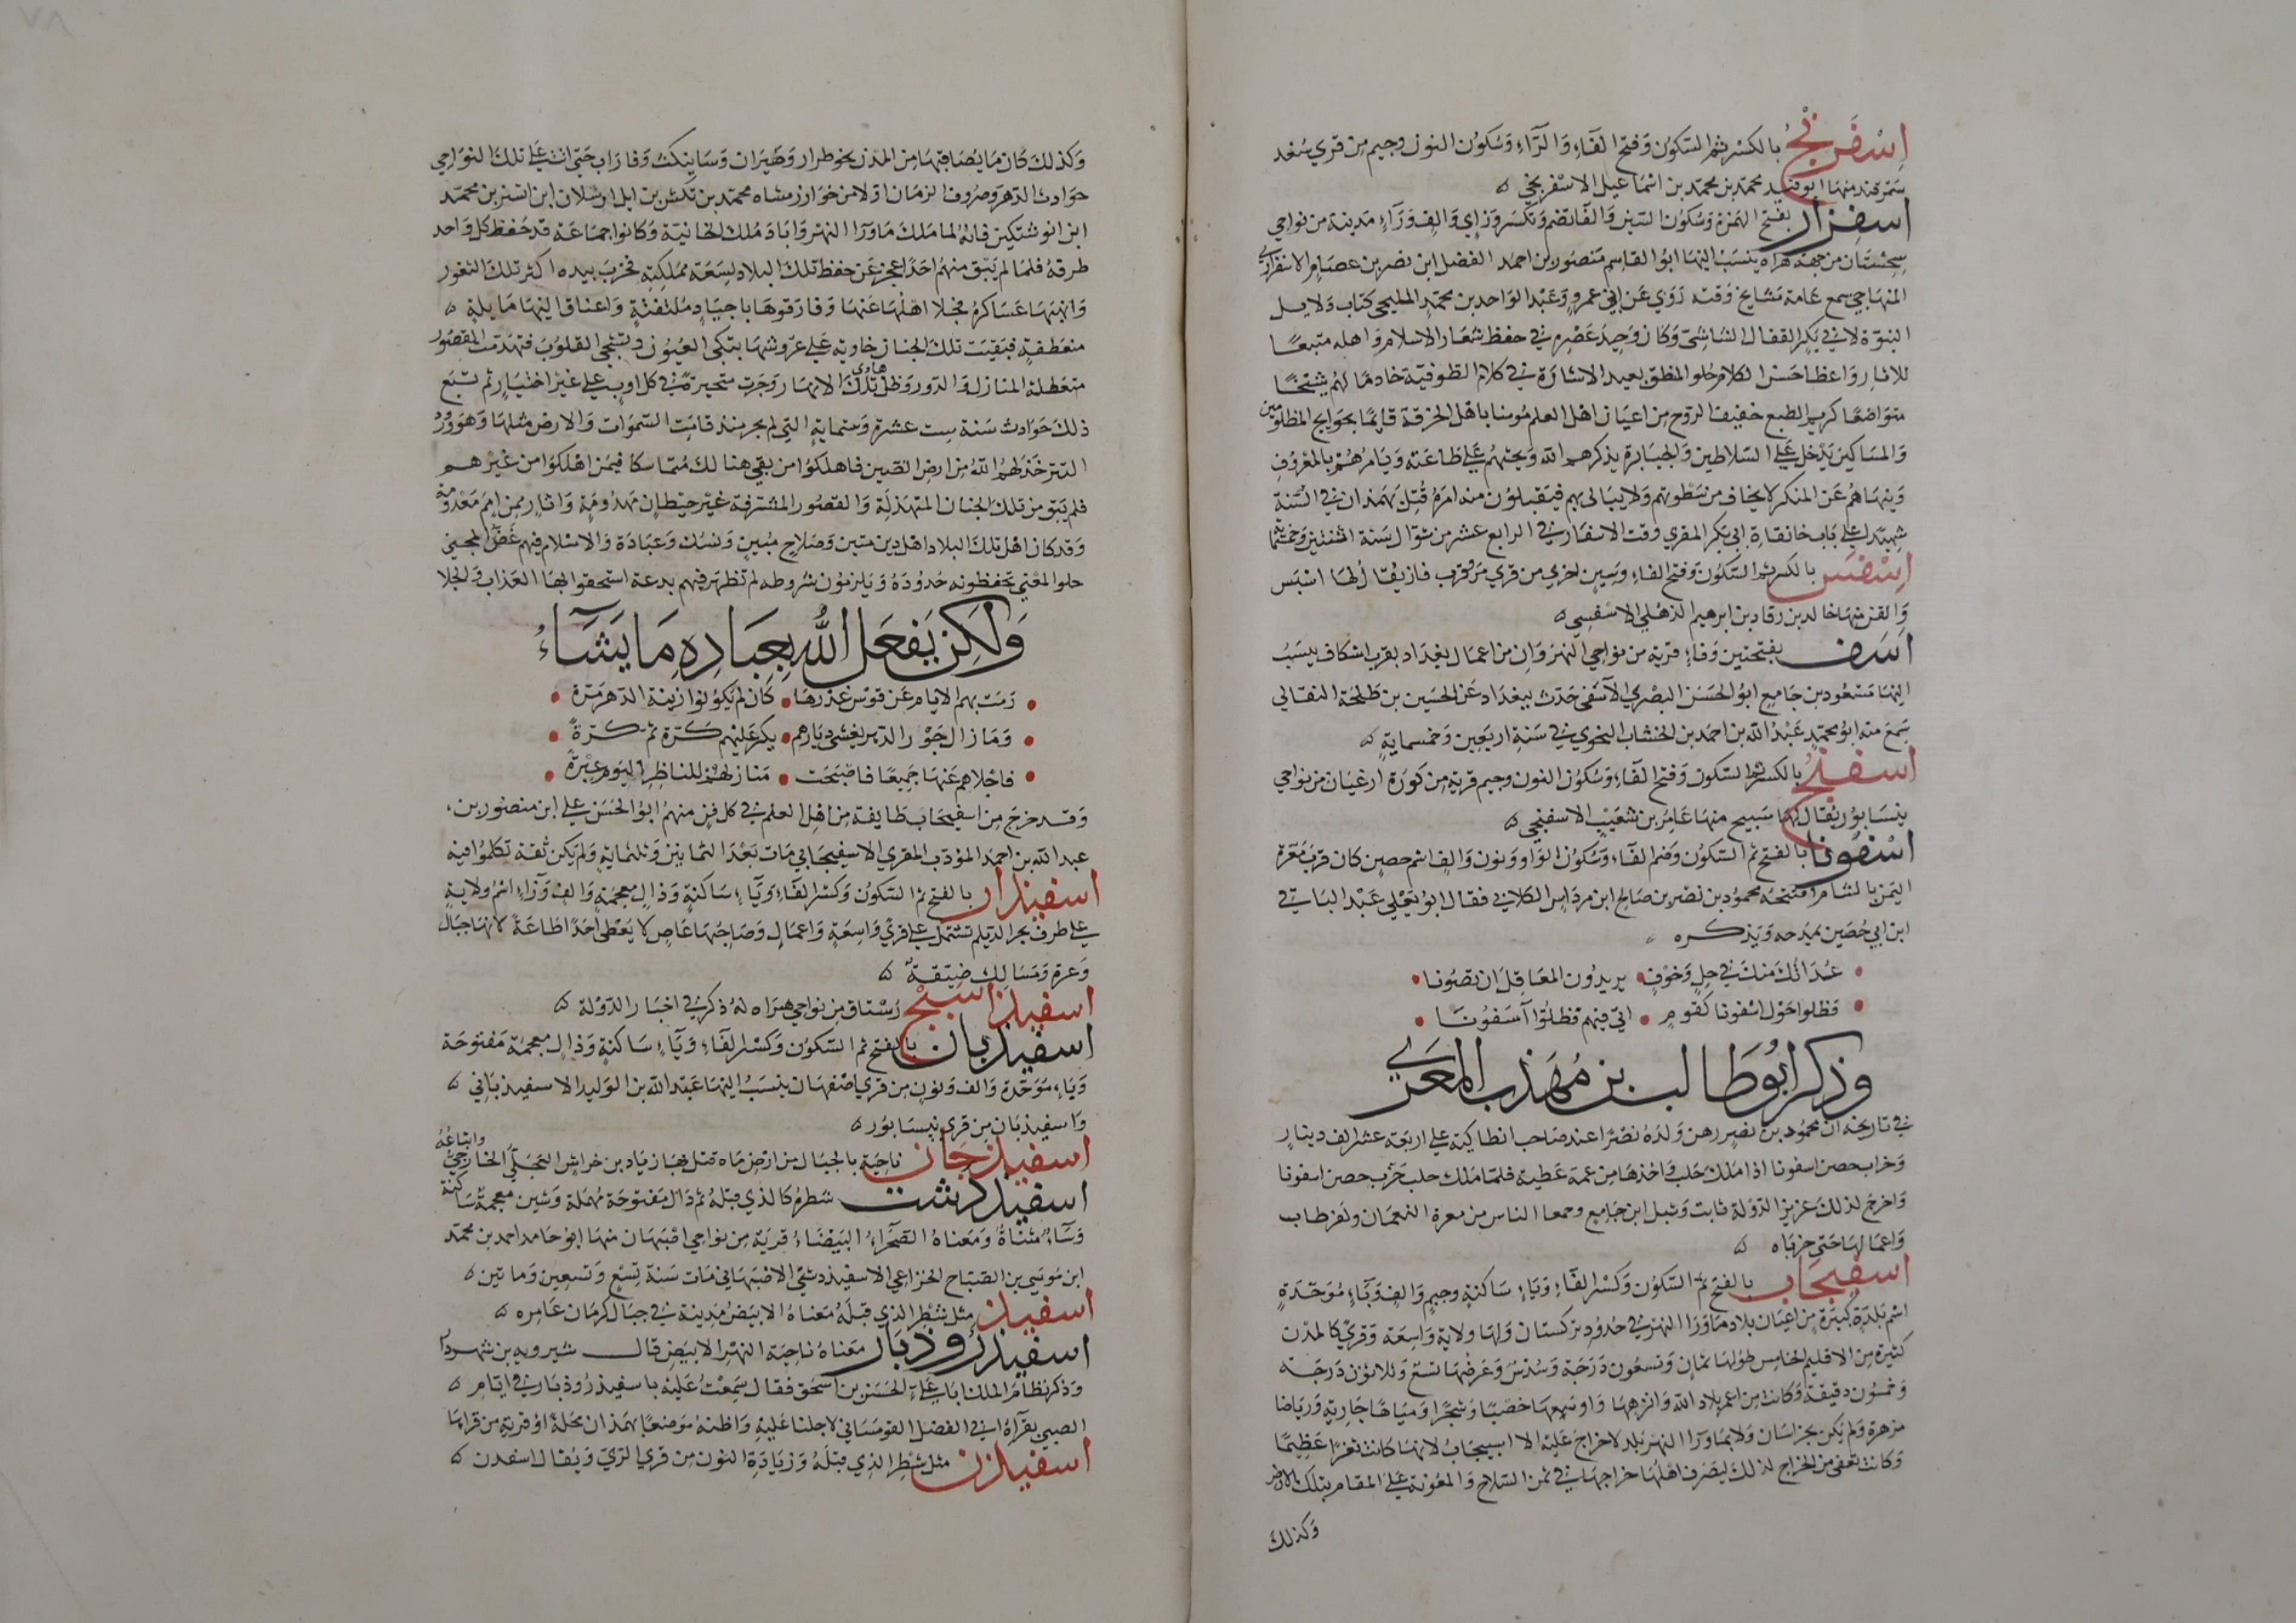 اسْفَرَنْج بالكسر ثم السكون وَفتح الفَاءِ وَالرَّاءِ وَسُكوُن النون وجيم من قري سُغد
سمَرقند منها ابو فيد محمد بن محمد بن اسماعيل الاسفرنجي
اسفزار بفتح الهَمزة وَسُكون السّين وَالفَا تضم وَتكسَر وَزَاي وَالِف وَرَاءِ مَدينة من نواحي
سِجستَان من جهَة هراة ينسَبُ اليْهَا ابوُ القاسِم مَنصُور بن احمد الفضل ابن نصر بن عصَام الاسفزاري
المنهَاجي سمع عامة مَشايخ وَقته رَوَي عَن ابي عمرو وَعَبْد الوَاحد بن محمّد المليحي كتاب دَلايل
النبوّة لابي بَكر القفال الشاشي وَكان وَحِيدَ عَصْرِه في حفظ شعَار الاسلام وَاهله متبعًا
للاثار وَاعظا حَسَن الكلام حُلو المنطق بعيد الاشارَة في كلام الطوفيّة خادمًا لهُم شيخًا
متواضعًا كريم الطبع خفيف الروح من اعيان اهل العلم مُومنا باهل الخرقة قائمًا بحوايج المظلومين
وَالمسَاكين يَدخل عَلي السّلاطين وَالجبَابرة يذكرهم الله وَيحثهم عَلي طَاعَته وَيَامرُهُمْ بالمعْرُوف
وَينهَاهُم عَن المنكر لا يخاف من سَطوتهم وَلا يبَالي بهم فيَقبَلوُن منه امرَهُ قُتِل بَهمَذان في السّنة
شهيدًا عَلي بَاب خانقاة ابي بَكر المقري وقت الاسفَار في الرابع عشر من شوّال سَنة اثنتين وَخمسمائة
اسْفَس بالكسر ثم السّكوُن وَفتح الفاءِ وَسِين اخري من قري مَرو قرب فاز يُقال لهَا اسْبَس
وَالفز منهَا خالد بن رقاد بن ابرهيم الذهلي الاسْفسِي
اسَف بفتحتين وَفاءِ قرية من نواحي النهرَوَان من اعمَال بغداد بقرب اسكاف ينسَبُ
اليْهَا مَسْعُود بن جَامع ابوُ الحسَن البصْري الاسَفي حَدث ببغدَاد عَن الحسَين بن طلحَة النعالي
سَمعَ منه ابوُ محمّد عَبْدُ الله بن احمَد بن الخشاب النحوي في سَنة اربَعين وَخمسماية
اسفنج بالكسر ثم السّكون وَفتح الفَاءِ وَسُكون النون وجيم قرية من كورَة ارغيان من نواحي
نيسَابوُر يُقال لهَا سَبيح منهَا عَامرُ بن شعَيْب الاسفنجي
اسْفوُنا بالفتح ثم السّكوُن وَضم الفَاءِ وَسُكوُن الوَاو وَنون وَالِف اسْم حصِين كان قربَ مَعَرّة
النعمن بالشام افتتحَهُ محموُد بن نصْر بن صَالح ابن مردَاس الكلابي فقال ابوُ يَعْلي عَبْد البَاقي
ابن ابي حُصَين يمدَحه وَيذكره
عُدَاتُكَ مِنكَ في وَجلٍ وَخوْفٍ يريدُون المعَاقِلَ ان تصُونا
فظلوا حَوْل اسْفونا كقوم اتي فيهِم فظلوُّا آسفونَا
وذكر ابوُ طَالب بن مُهَذّب المَعَري
في تاريخه انّ محمُود بن نصر رهن وَلدَهُ نصرًا عند صَاحب انطاكية علي اربَعة عشر الف دينَار
وَخراب حصن اسفونا اذا مَلكَ حَلب وَاخذهَا من عمه عَطيه فلمّا مَلك حلب خرّب حصن اسفونا
وَاخرج لذلك عَزيز الدّوْلة ثابت وَشبل ابن جَامع وجمعا الناس من معرة النعمان وكفرطاب
وَاعمَالهَا حَتى خربَاه
اسفيجَاب بالفتح ثم السّكوُن وَكسْر الفَاءِ وَيَاءٍ سَاكنةٍ وجيمٍ وَالِفٍ وَبَاءٍ مُوَحّدَةٍ
اسْم بَلدَةٍ كبيرَةٍ من اعيَان بلادِ مَا وَرَا النهر في حُدوُد تركستان وَلهَا ولايةٍ وَاسعَة وَقريً كالمدن
كثيرة من الاقليم الخامِس طولهَا ثمان وَتسعُون دَرَجَة وَسُدس وَعَرضهَا تسع وَثلاثون دَرَجَة
وَخمسُون دقيقة وَكانت من اعمر بلاد الله وَانزههَا وَاوسَعِهَا خصبًا وَشجَرًا وَميَاهًا جَارية وَريَاضا
مزهرة وَلم يَكن بخراسَان وَلا بمَا وَرَا النهر بَلد لا خراج عَليْه الا اسبيجَابُ لانها كانت ثغرًا عَظيمًا
وَكانت تعفى من الخراج لذلك ليَصْرف اهلهَا خراجهَا في ثمن السّلاح وَالمعُونة عَلي المقام بتلك الارض
وَكذلك
وَكذلك كان مَا يُصَاقبهَا من المدن نحو طرار وَصَبران وَسَا نيكث وَفارَاب حَتى اتت عَلي تلك النوَاحي
حوَادث الدّهر وَصروف الزمان اوّلا من خوَارزم شاه محمّد بن تكش بن ايل ارسْلان ابن اتسز بن محمّد
ابن انوشتكين فانهُ لما مَلكَ مَا وَرَا النهر وَابَادَ مُلك الخانية وَكانوا جماعَة قد حَفظ كل وَاحد
طرفهُ فلمّا لم يَبْق منهم احَدًا عجز عَن حفظ تلك البلاد لسَعَة مَمْلكته فخربَ بيده اكثر تلك الثغور
وَانهبَهَا عَسَاكرهُ فجلا اهلهَا عَنهَا وَفارَقوهَا باجيَادٍ مُلتفتةٍ وَاعناق اليهَا مَايلةٍ
منعَطفةٍ فبَقيَت تلك الجنان خاوية عَلي عرُوشهَا تبكي العيُون وَتشجي القلوُبَ منهَدمَة القصُور
متعَطلة المنازل وَالدّور وَظل هَادي تلك الانهَار وَجَرت متحيرةً في كل اوب علي غيْر اختيَار ثم تتبع
ذلك حَوَادث سَنة ست عشرة وَستماية التي لم يجر منذ قامت السّموَات وَالارض مثلهَا وَهو ورُود
التتر خذلهُم اللهُ من ارض الصّين فاهلكوُا من بَقي هنا لك مُتماسكا فيمَن اهْلكوُا من غيرْهم
فلم يَبْق من تلك الجنان المتهَدلَة وَالقصُور المشرفة غيْر حيْطان مَهدُومَةٍ وَاثار من امَم مَعْدومة
وَقد كان اهْل تلك البلاد اهْل دين متين وَصَلاح مُبين وَنسْك وَعبَادَة وَالاسْلام فيهم غَضّ المجني
حلو المعْني يحَفظونه حُدوُدَهُ وَيَلزمُون شروطه لم تظهَر فيهم بدعة استحقوا بهَا العَذابَ وَالجلا
وَلَكِن يَفعَل اللهُ بِعِبَادِهِ مَا يَشَاءُ
رَمَت بهم الايام عَن قوس غدْرهَا كان لم يَكونوُا زينة الدّهر مَرّة
وَمَا زَال جَوْر الدّهر يغشى ديَارهم يكر عَليْهم كَرّة ثم كرّةً
فاجْلاهم عَنهَا جَميعًا فاصْبَحَت مَنازلهُمْ للناظِر اليَوْم عِبْرَة
وَقد خرَج مِن اسفيجَاب طَايفة من اهْل العلم في كل فن منهمُ ابوُ الحسَن علي ابن منصُور بن
عبد الله بن احمَد المؤدّب المقري الاسفيجَابي مَات بَعْدَ الثمَانين وَثلثمَايةٍ وَلم يَكن ثقة تكلموُا فيه
اسفيذار بالفتح ثم السّكوُن وَكسْر الفَاءِ وَيَاءٍ سَاكنةٍ وَذالٍ معجمَة وَالفٍ وَرَاءٍ اسْم ولايةٍ
عَلي طرف بحر الديلم تشتمل عَلي قريً وَاسعَةٍ وَاعمَال وَصَاحبهَا عَاصٍ لا يَعْطى احَدًا طَاعَةً لانهَا جبَال
وَعرة وَمَسَالك ضيّقةٌ
اسفيذاسَنْج رُسْتاق من نواحي هرَاه لهُ ذكر في اخبَار الدّوْلة
اسفيذبَان بالفتح ثم السّكوُن وَكسْر الفَاءِ وَيَاءٍ سَاكنةٍ وَذالٍ معجمةٍ مَفتوحَة
وَبَاءٍ مُوَحّدة وَالف وَنون من قري اصْفهَان ينسَبُ اليْهَا عَبْد الله بن الوَليد الاسفيذبَاني
وَاسفيذبَان من قري نيسَابوُر
اسفيذجَان ناحيَة بالجبَال من ارْض مَاه قتل بهَا زيَاد بن خراش العجَلي الخارجيُّ وَاتباعُهُ
اسفيذدشت شَطرهُ كالذي قبلهُ ثم دَال مَفتوحَة مُهملة وَشين معجمةٌ سَاكنة
وَتَاءٌ مثناةٌ وَمَعناهُ الصّحرَاءُ البَيْضاءُ قريَة من نوَاحي اصْبَهَان منهَا ابو حَامد احمد بن محمّد
ابن مُوسَي بن الصّبّاح الخزاعي الاسفيذدشتي الاصْبَهَاني مَات سَنة تِسْع وَتسعين وَمائتين
اسفيذ مثل شَطْر الذي قبلَهُ مَعناهُ الابيَضُ مدينة في جبَال كرمَان عَامره
اسفيذرُوذبَار مَعناهُ ناحيَة النهر الابيض قال شيرويه بن شهردار
وَذكر نظام الملك ابا عَلي الحَسَن بن اسحَق فقال سَمعْتُ عَليْه باسفيذرُوذبَار في ايّام
الصبي بقرآةِ ابي الفضل القومسَاني لاجلنا عَليْهِ وَاظنهُ مَوضعًا بهَمذان محَلة اوْ قرية من قراهَا
اسفيذن مثل شَطر الذي قبلهُ وَزيَادَة النون من قري الرّي وَيُقال اسفدن
٧٨